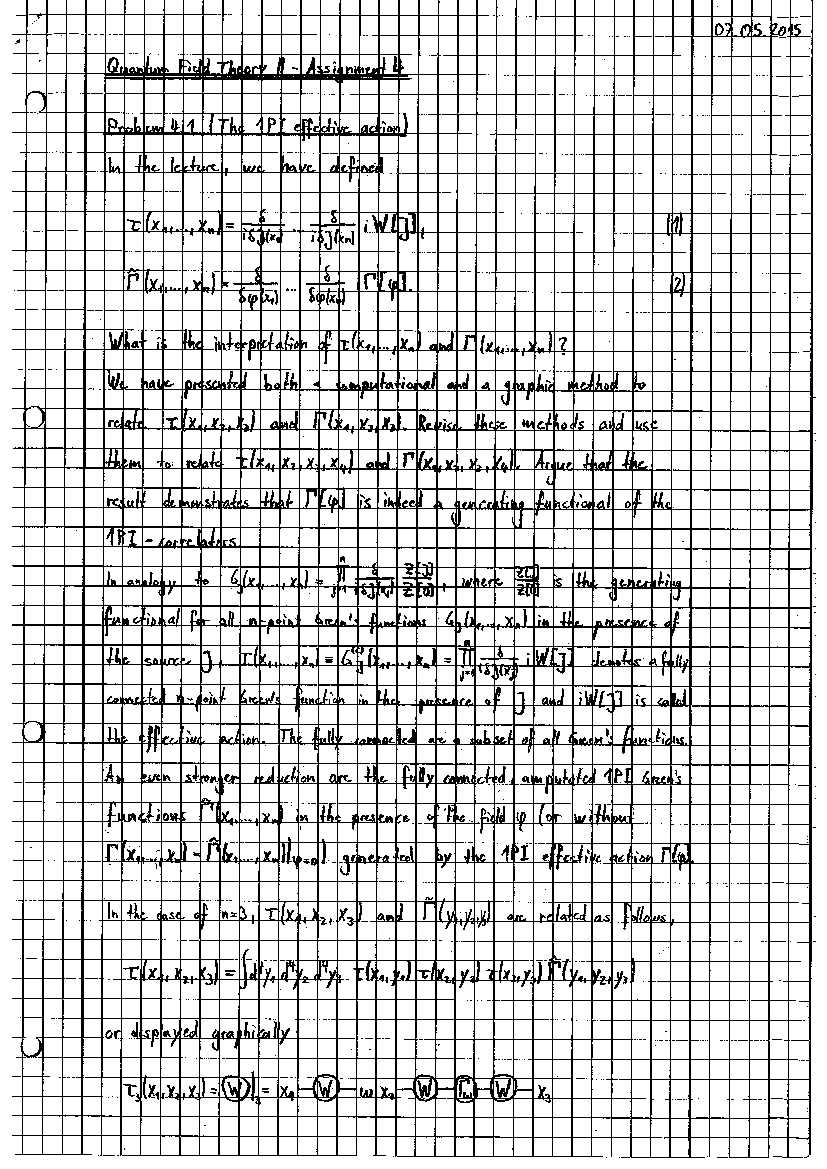 07.05.2015
Quantum Field Theory II - Assignment 4
Problem 4.1 (The 1PI effective action)
In the lecture, we have defined
τ(x₁,...,xₙ) = δ/iδJ(x₁) ... δ/iδJ(xₙ) iW[J], (1)
Γ̃(x₁,...,xₙ) = δ/δφ(x₁) ... δ/δφ(xₙ) iΓ[φ]. (2)
What is the interpretation of τ(x₁,...,xₙ) and Γ(x₁,...,xₙ)?
We have presented both a computational and a graphic method to
relate τ(x₁,x₂,x₃) and Γ(x₁,x₂,x₃). Revise these methods and use
them to relate τ(x₁,x₂,x₃,x₄) and Γ(x₁,x₂,x₃,x₄). Argue that the
result demonstrates that Γ[φ] is indeed a generating functional of the
1PI-correlators.
In analogy to G_J(x₁,...,xₙ) = ∏_{j=1}^n δ/iδJ(x_j) Z[J]/Z[0], where Z[J]/Z[0] is the generating
functional for all n-point Green's functions G_J(x₁,...,xₙ) in the presence of
the source J, τ(x₁,...,xₙ) ≡ G_J^(c)(x₁,...,xₙ) = ∏_{j=1}^n δ/iδJ(x_j) iW[J] denotes a fully
connected n-point Green's function in the presence of J and iW[J] is called
the effective action. The fully connected are a subset of all Green's functions.
An even stronger reduction are the fully connected, amputated 1PI Green's
functions Γ̃(x₁,...,xₙ) in the presence of the field φ (or without
Γ(x₁,...,xₙ) = Γ̃(x₁,...,xₙ)|_{φ=0}) generated by the 1PI effective action Γ[φ].
In the case of n=3, τ(x₁,x₂,x₃) and Γ̃(y₁,y₂,y₃) are related as follows,
τ(x₁,x₂,x₃) = ∫d⁴y₁ d⁴y₂ d⁴y₃ τ(x₁,y₁) τ(x₂,y₂) τ(x₃,y₃) Γ̃(y₁,y₂,y₃)
or displayed graphically
τ₃(x₁,x₂,x₃) = W|₃ = x₁ W x₂ W W x₃